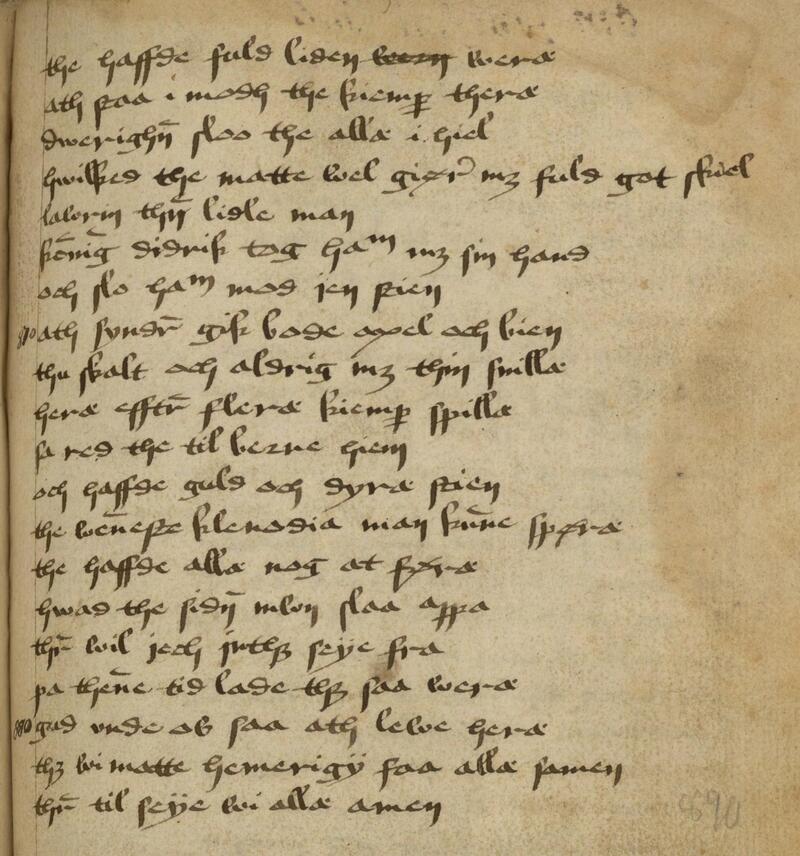 the haffde fuld liden wern weræ
ath staa i modh the kiemp theræ
dwerighn sloo the allæ i hiel
hwilked the matte wel giør mz fuld got skiel
lawrin thn lidle man
koning didrik tog ham mz sin hand
och slo ham mod jen stien
870 ath syndr gik bode axel och bien
thu skalt och aldrig mz thin snillæ
heræ efftr fleræ kiemp spillæ
sa red the til berne hiem
och haffde guld och dyræ stien
the weneste klenodia man kunne spøræ
the haffde allæ nog at føræ
hwad the sidn mwn slaa appa
thr wil jech inthz seye fra
pa thenne tid lade thz saa weræ
880 gud vnde os saa ath lewe heræ
thz wi matte hemerigy faa allæ samen
thr til seye wi allæ amen
890